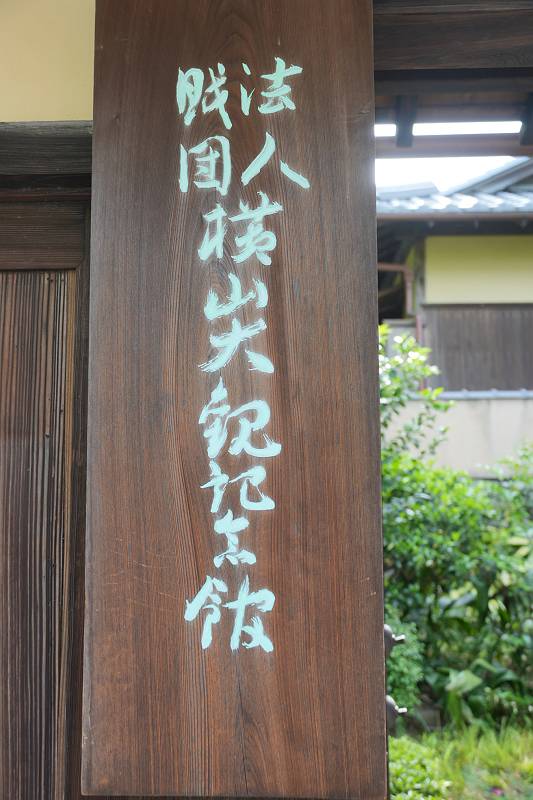 財団
法人
横山大観記念館